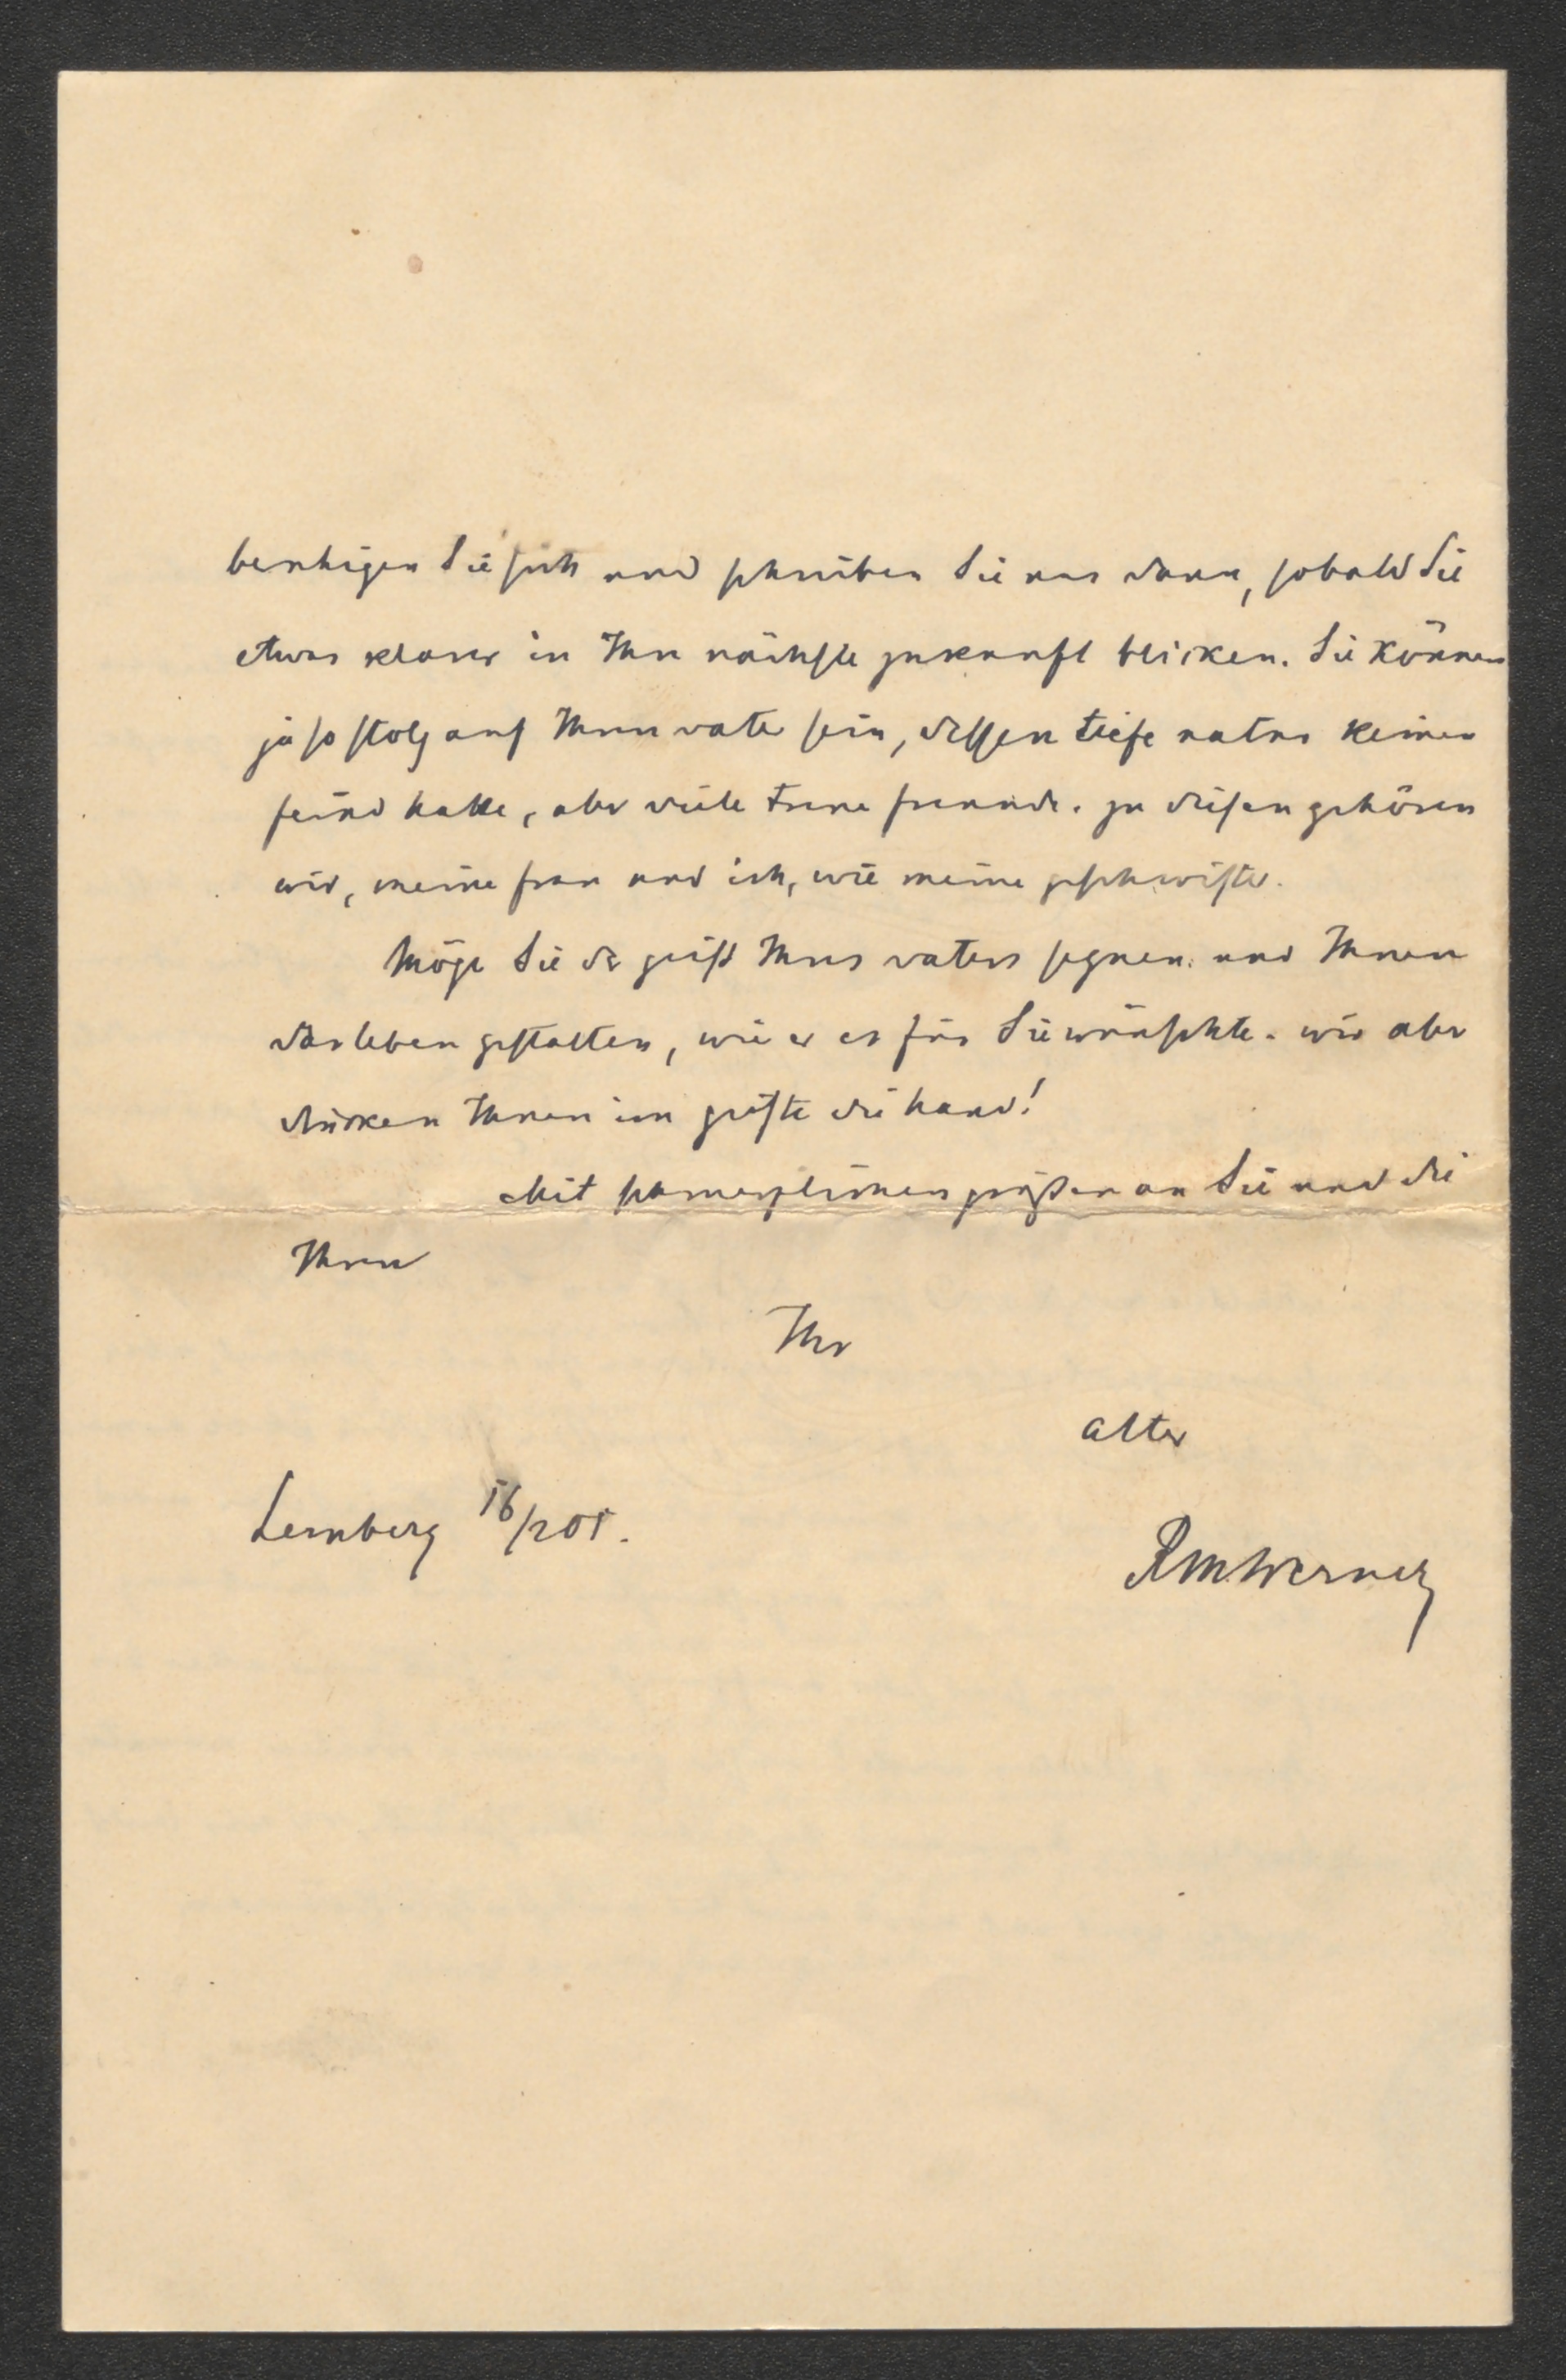 beruhigen Sie sich und schreiben Sie uns dann, sobald Sie
etwas klarer in Ihre nächste zukunft blicken. Sie können
ja so stolz auf Ihren vater sein, dessen tiefe natur keinen
feind hatte, aber viele treue freunde. zu diesen gehören
wir, meine frau und ich, wie meine geschwister.
Möge Sie der geist Ihres vaters segnen und Ihnen
das leben gestalten, wie er es für Sie wünschte. wir aber
drücken Ihnen im geiste die hand!
Mit schmerzlichen grüßen an Sie und die
Ihren
Ihr
alter
Lemberg 16/2 01.
RMWerner